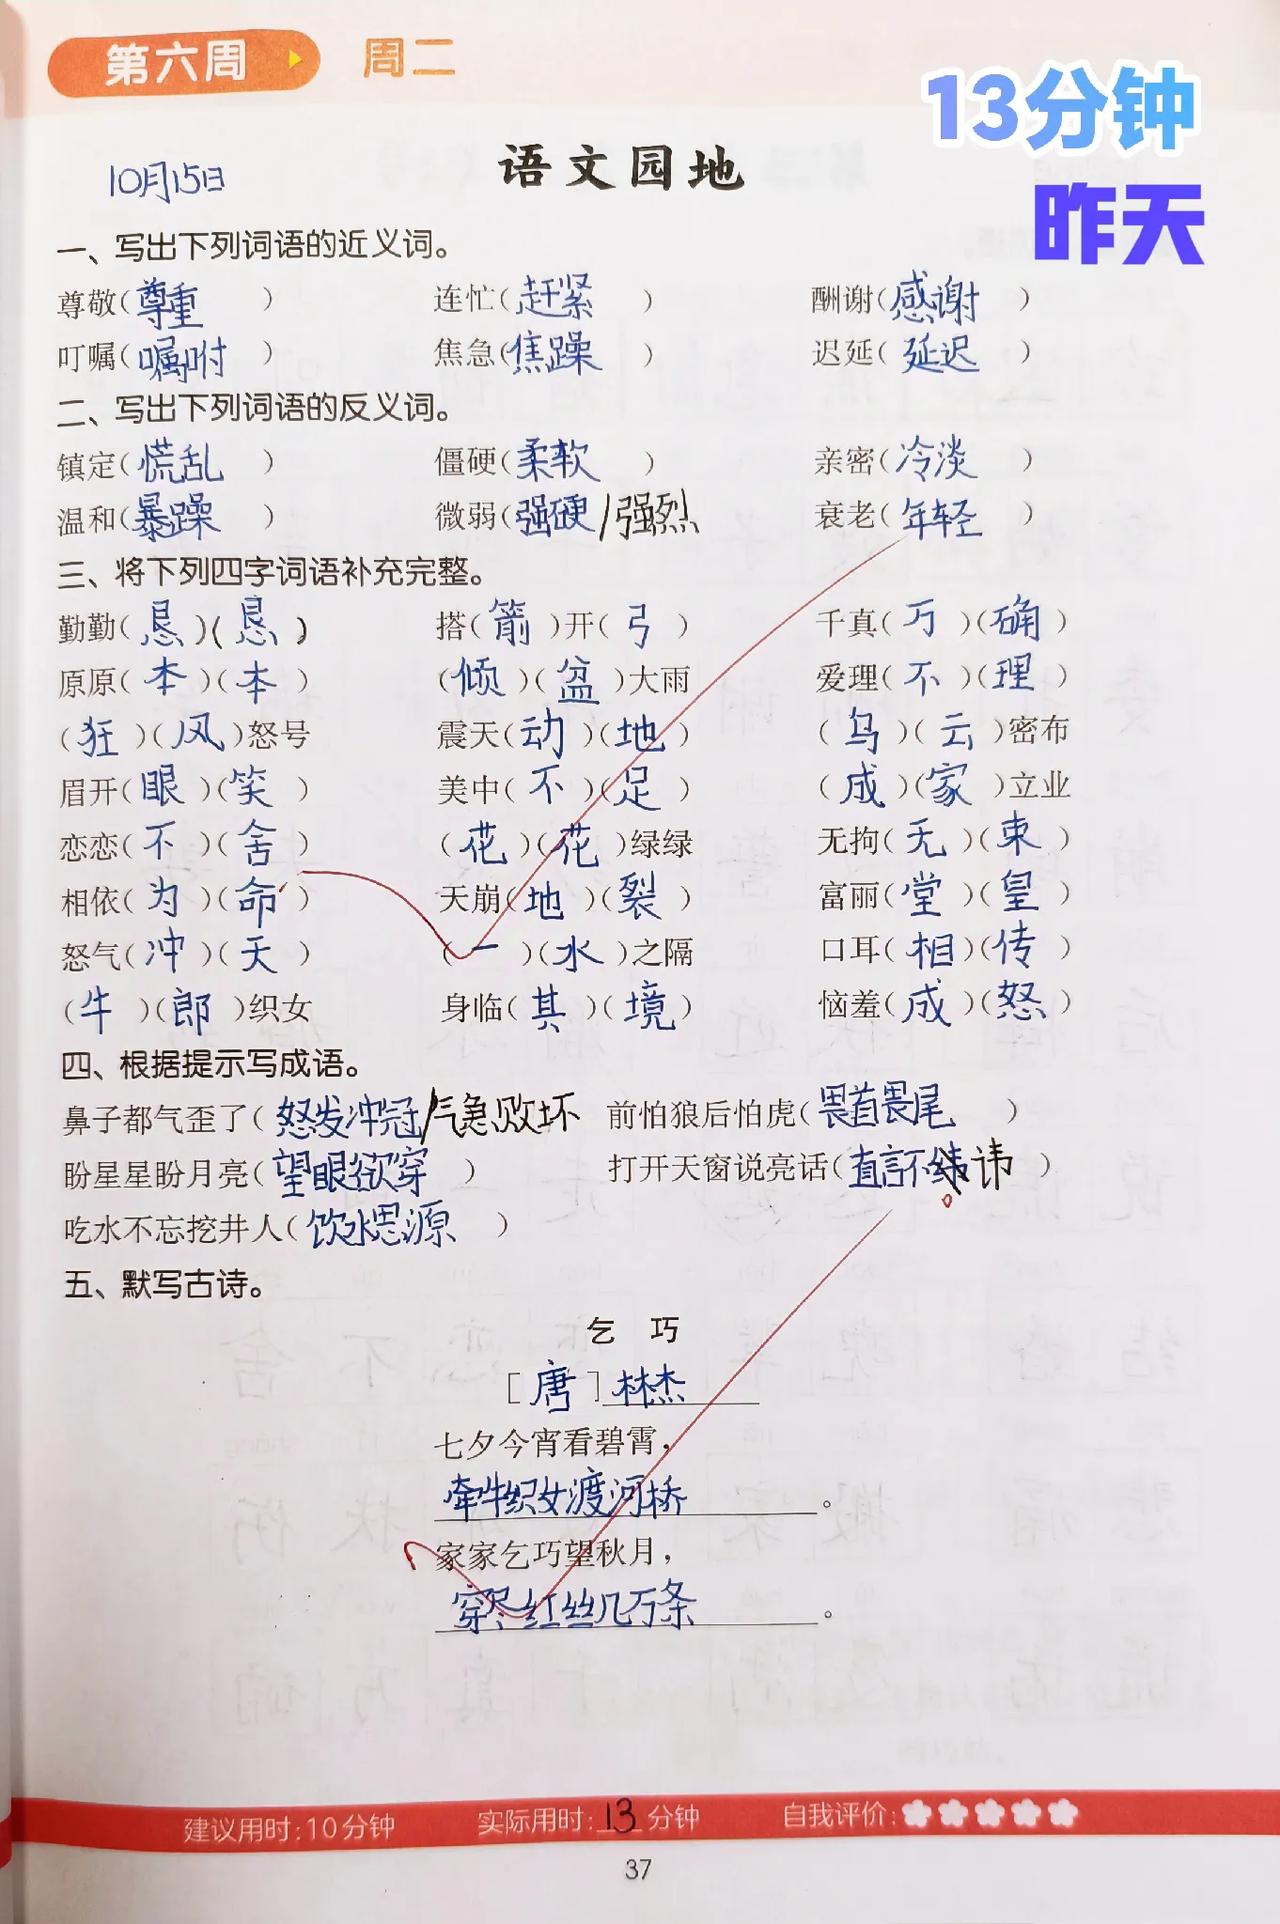 第六周 周二
13分钟
昨天
10月15日
语文园地
一、写出下列词语的近义词。
尊敬(尊重) 连忙(赶紧) 酬谢(感谢)
叮嘱(嘱咐) 焦急(焦躁) 迟延(延迟)
二、写出下列词语的反义词。
镇定(慌乱) 僵硬(柔软) 亲密(冷淡)
温和(暴躁) 微弱(强硬/强烈 衰老(年轻)
三、将下列四字词语补充完整。
勤勤(恳)(恳) 搭(箭)开(弓) 千真(万)(确)
原原(本)(本) (倾)(盆)大雨 爱理(不)(理)
(狂)(风)怒号 震天(动)(地) (乌)(云)密布
眉开(眼)(笑) 美中(不)(足) (成)(家)立业
恋恋(不)(舍) (花)(花)绿绿 无拘(无)(束)
相依(为)(命) 天崩(地)(裂) 富丽(堂)(皇)
怒气(冲)(天) (一)(水)之隔 口耳(相)(传)
(牛)(郎)织女 身临(其)(境) 恼羞(成)(怒)
四、根据提示写成语。
鼻子都气歪了(怒发冲冠/气急败坏 前怕狼后怕虎(畏首畏尾)
盼星星盼月亮(望眼欲穿) 打开天窗说亮话(直言不讳)
吃水不忘挖井人(饮水思源)
五、默写古诗。
乞 巧
[唐]林杰
七夕今宵看碧霄，
牵牛织女渡河桥。
家家乞巧望秋月，
穿尽红丝几万条。
建议用时:10分钟 实际用时:13分钟 自我评价:
37